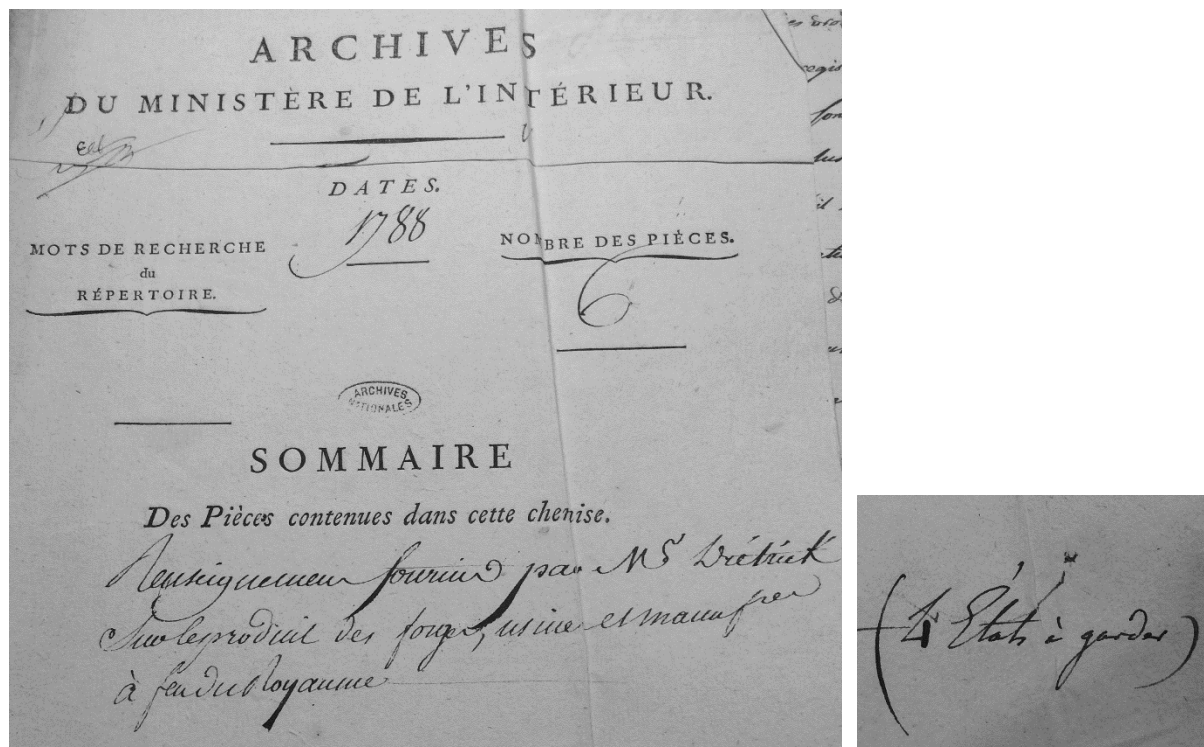 ARCHIVES
DU MINISTÈRE DE L'INTÉRIEUR.
DATES.
1788
MOTS DE RECHERCHE
du
RÉPERTOIRE.
NOMBRE DES PIÈCES.
6
ARCHIVES
NATIONALES
SOMMAIRE
Des Pièces contenues dans cette chemise.
Renseignemens fournis par Mr Diétrick
Sur le produit des forges, usines et manufres
à feu du Royaume
(4 États à garder)